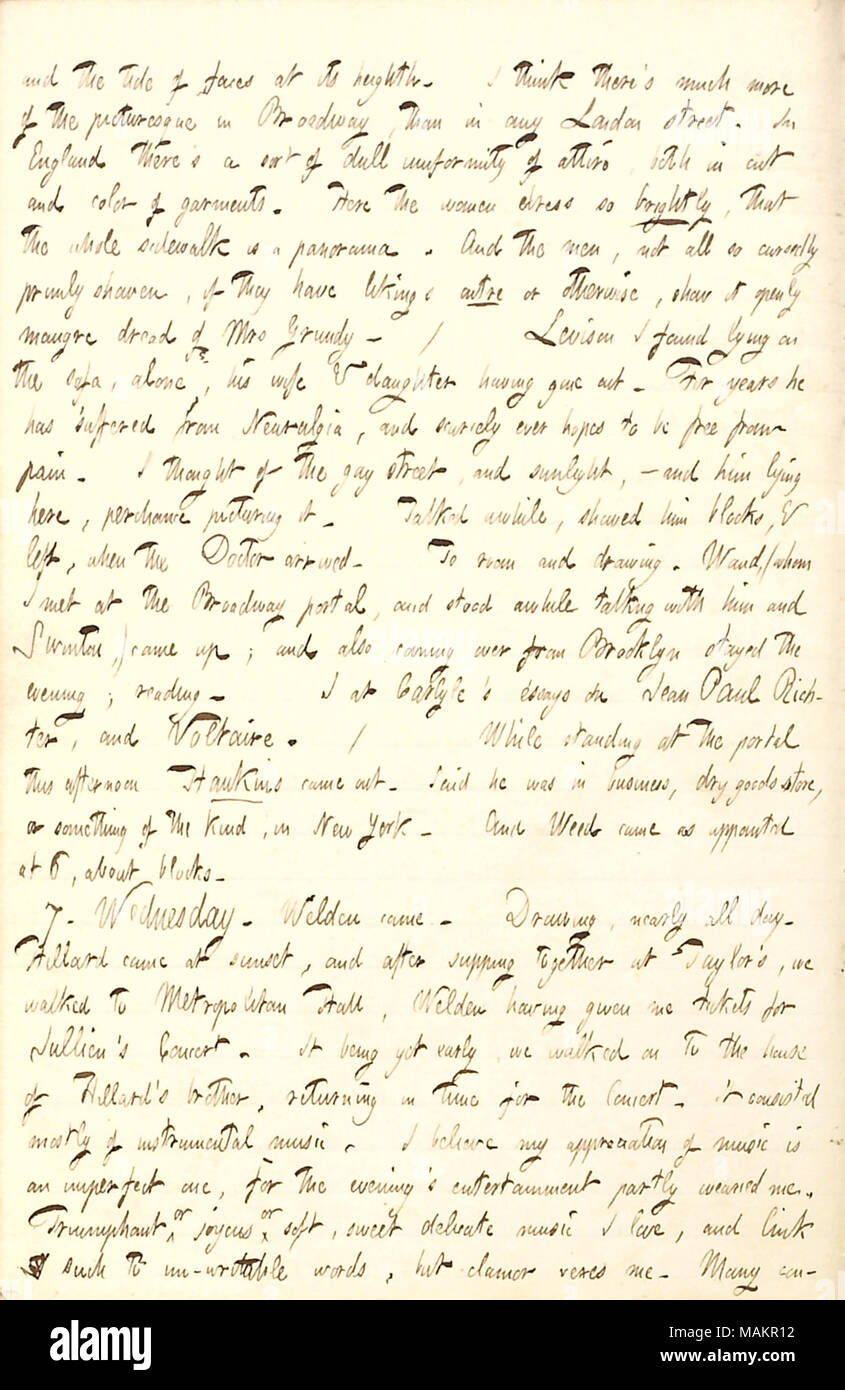 and the tide of faces at its heighth. I think there's much more
of the picturesque in Broadway, than in any London street. In
England there's a sort of dull uniformity of attire, both in cut
and color of garments. Here the women dress so brightly, that
the whole sidewalk is a panorama. And the men, not all so cursedly
primly shaven, if they have likings outre or otherwise, show it openly
maugre dread of Mrs Grundy — / Levison I found lying on
the sofa, alone, his wife & daughter having gone out. For years he
has suffered from Neuralgia, and scarcely ever hopes to be free from
pain. I thought of the gay street, and sunlight, — and him lying
here, perchance picturing it. Talked awhile, showed him blocks, &
left, when the Doctor arrived. To room and drawing. Waud, (whom
I met at the Broadway portal, and stood awhile talking with him and
Swinton,) came up; and also coming over from Brooklyn stayed the
evening; reading. I at Carlyle's essays on Jean Paul Rich-
ter, and Voltaire. / While standing at the portal
this afternoon Hankins came out. Said he was in business, dry goods store,
or something of the kind, in New York. And Weed came as appointed
at 6, about blocks.
7. Wednesday. Welden came. Drawing, nearly all day.
Hillard came at sunset, and after supping together at Taylor's, we
walked to Metropolitan Hall, Welden having given me tickets for
Jullien's Concert. It being yet early, we walked on to the house
of Hillard's brother, returning in time for the Concert. It consisted
mostly of instrumental music. I believe my appreciation of music is
an imperfect one, for the evening's entertainment partly wearied me.
Triumphant, or joyous, or soft, sweet delicate music I love, and link
such to un-writable words, but clamor vexes me. Many con-
alamy
Image ID: MAKR12
www.alamy.com